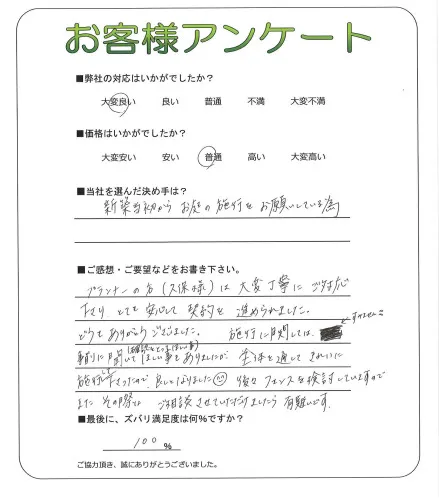 お客様アンケート
■弊社の対応はいかがでしたか？
大変良い 良い 普通 不満 大変不満
■価格はいかがでしたか？
大変安い 安い 普通 高い 大変高い
■当社を選んだ決め手は？
新築当初からお庭の施行をお願いしている為
■ご感想・ご要望などをお書き下さい。
プランナーの方(久保様)は大変丁寧にご対応
下さりとても安心して契約を進められました。
どうもありがとうございました。 施行に関しては、
すみません
事前に聞いてほしい事もありましたが 全体を通してきれいに
施行下さったので良しとしました 後々フェンスを検討していますので
またその際は ご相談させていただけましたら有難いです。
■最後に、ズバリ満足度は何%ですか？
100 %
ご協力頂き、誠にありがとうございました。